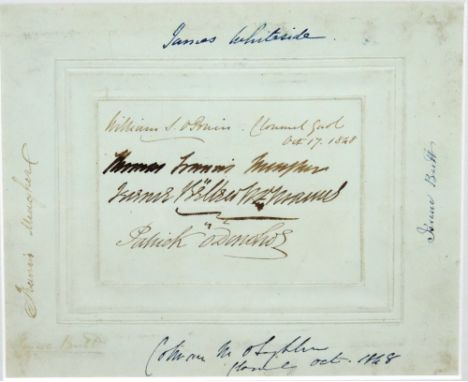 James Whiteside.
William S. O'Brien - Clonmel Gaol
Oct 17. 1848
Thomas Francis Meagher
Terence Bellew McManus
Patrick O'Donohoe
Francis Meagher
Isaac Butt
Isaac Butt
Colman M. O'Loghlen
Clonmel Oct. 1848